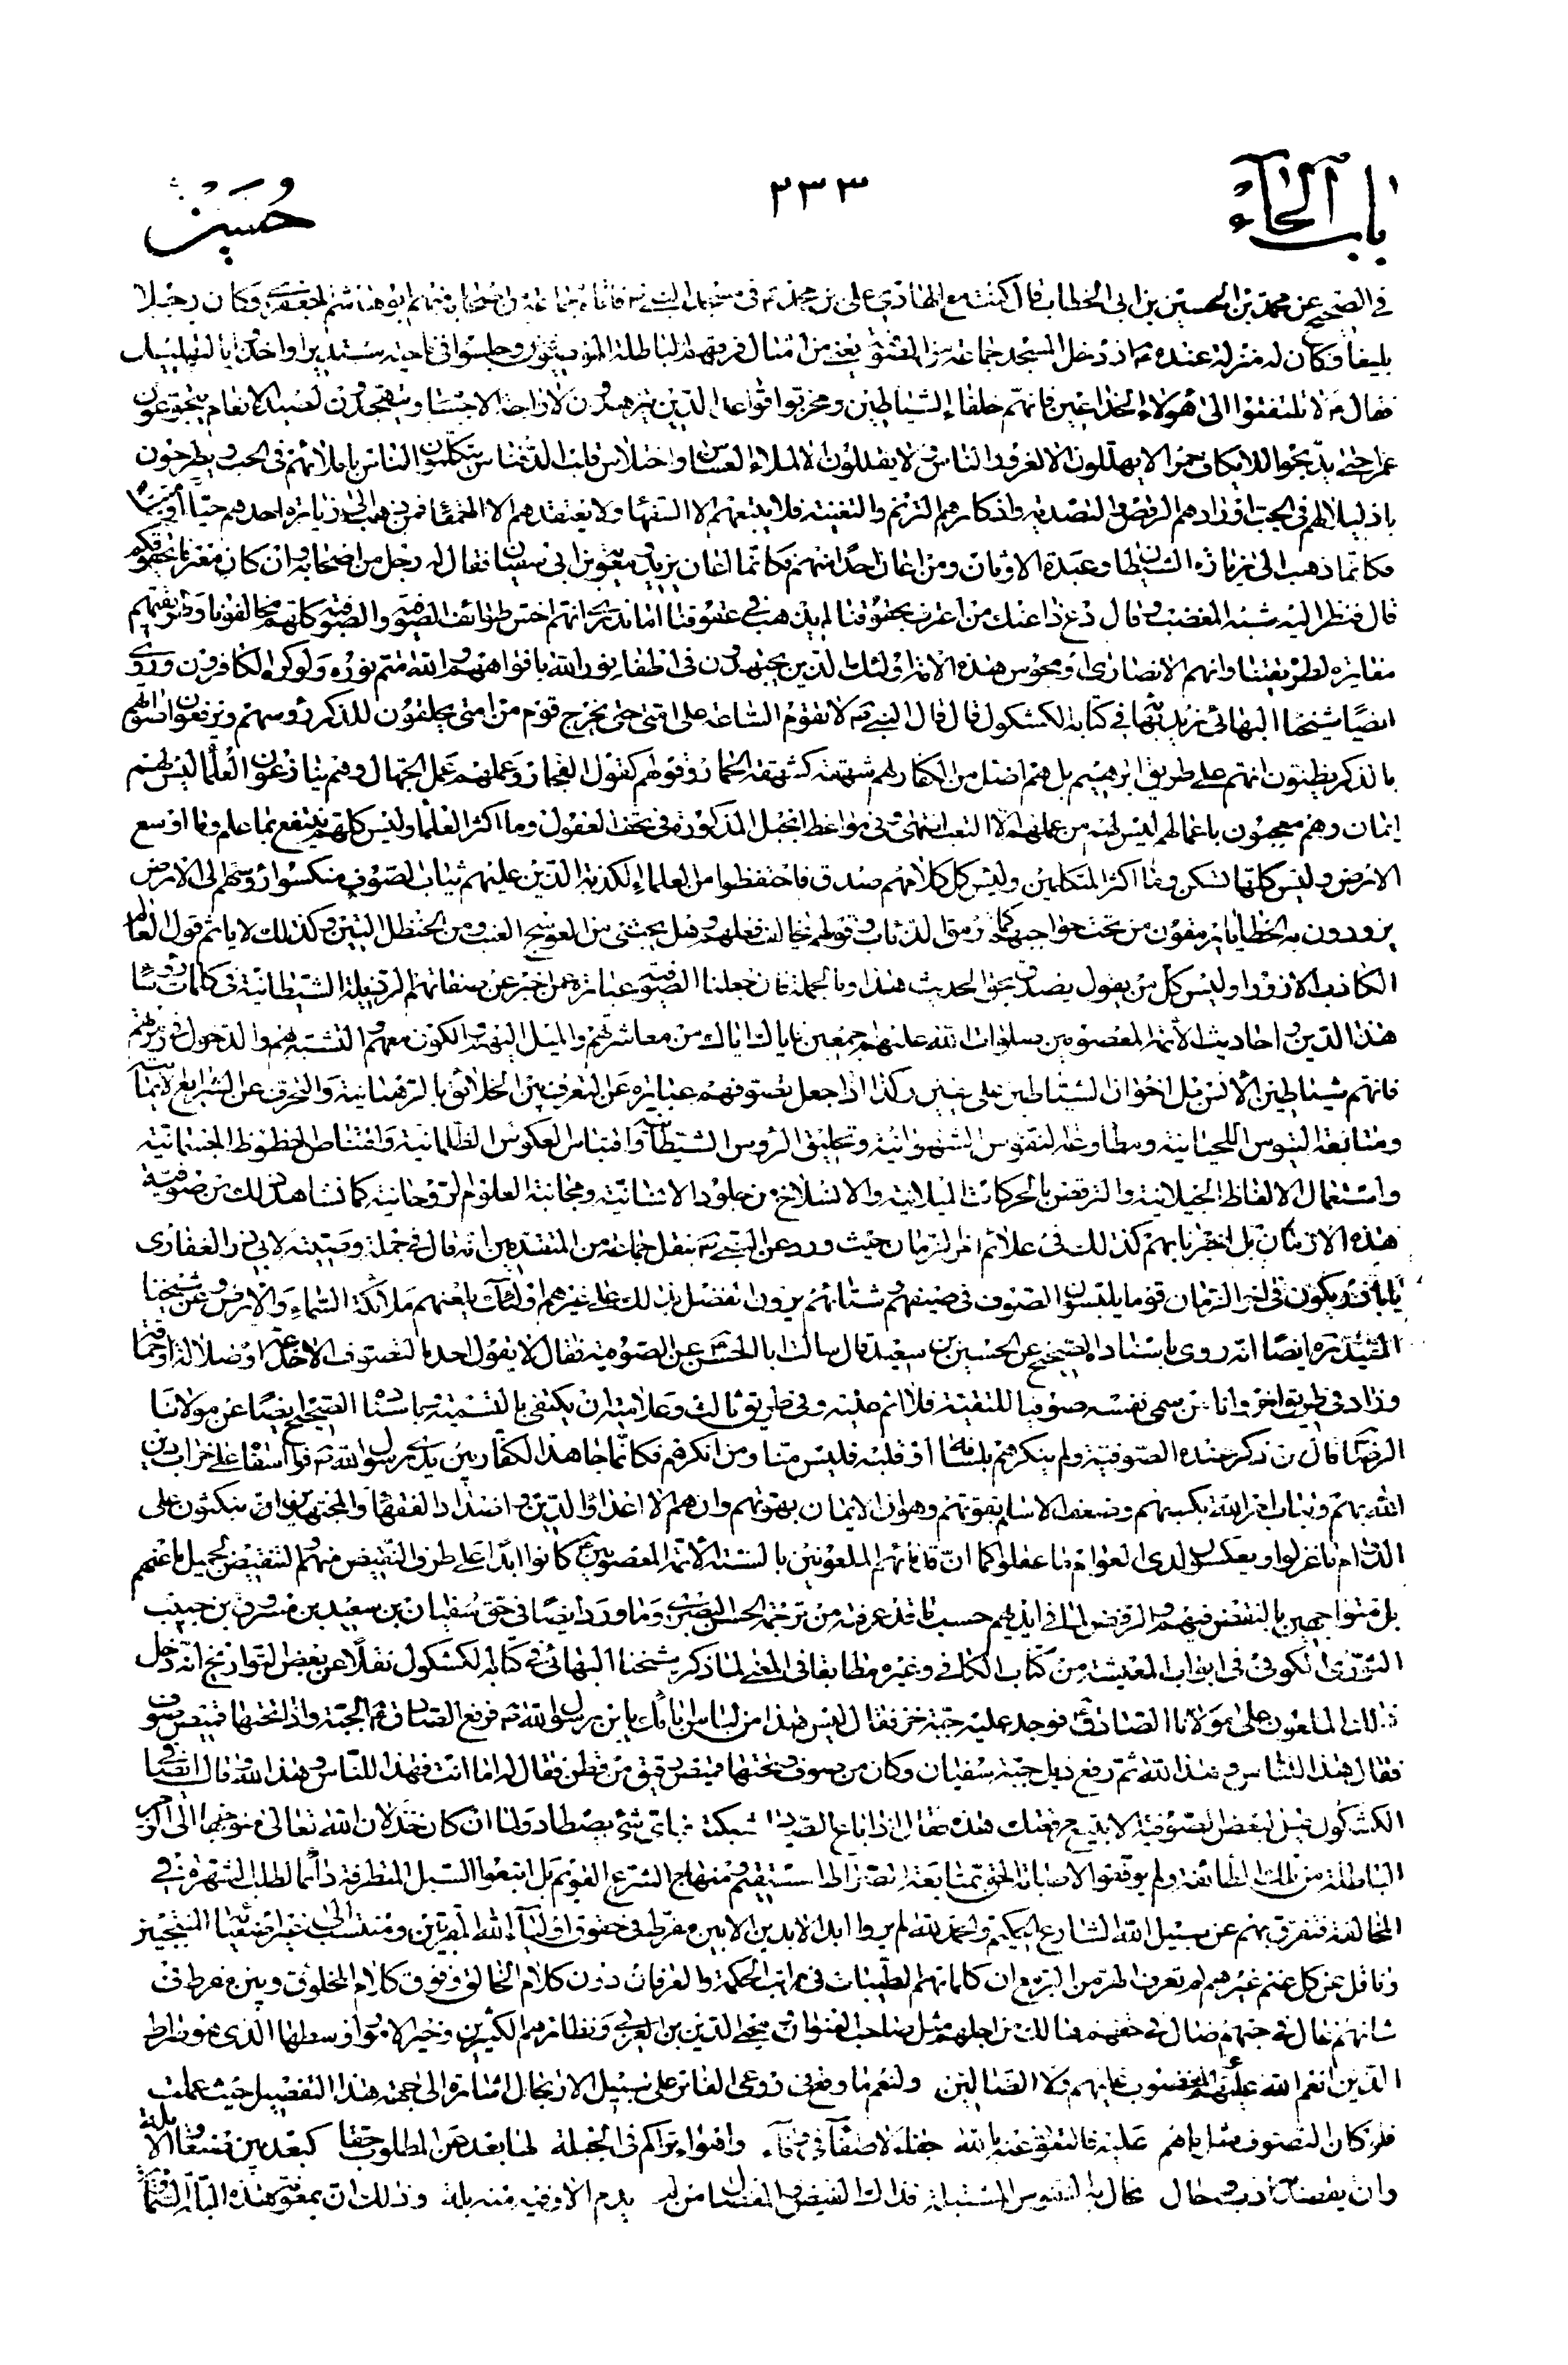 باب الحاء
٢٣٣
حسين
في الصحيح عن محمد بن الحسين بن ابى الخطاب قال كنت مع الهادى على بن محمد ع فى مسجد النبى ص فاتاه جماعة من اصحابه منهم ابو هاشم الجعفرى وكان رجلا
بليغا وكان له منزلة عنده ع اذ دخل المسجد جماعة من الصوفية وجلسوا فى ناحية مستديرا واخذوا بالتهليل
فقال ع لا تلتفتوا الى هؤلاء الخداعين فانهم خلفاء الشياطين ومخربوا قواعد الدين يتزهدون لاراحة الاجسام ويتهجدون لصيد الانعام يتجوعون
عمرا حتى يديخوا للايكاف حمرا لا يهللون الا لغرور الناس ولا يقللون الا لملاء العساس واختلاس قلب الدفناس يتكلمون الناس باملائهم فى الحب ويطرحون
باذليلائهم فى الجب اورادهم الرقص والتصدية واذكارهم الترنم والتغنية فلا يتبعهم الا السفهاء ولا يعتقدهم الا الحمقاء فمن ذهب الى زيارة احدهم حيا او ميتا
فكانما ذهب الى زيارة الشيطان وعبدة الاوثان ومن اعان احدا منهم فكانما اعان يزيد ومعوية وابى سفيان فقال له رجل من اصحابه وان كان معترفا بحقوقكم
قال فنظر اليه شبه المغضب وقال دع ذا عنك من اعترف بحقوقنا لم يذهب فى عقوقنا اما تدرى انهم اخس طوائف الصوفية والصوفية كلهم مخالفونا وطريقتهم
مغايرة لطريقتنا وانهم الا نصارى او مجوس هذه الامة اولئك الذين يجتهدون فى اطفاء نور الله بافواههم والله متم نوره ولو كره الكافرون وروى
ايضا شيخنا البهائى زيد بهائه فى كتابه الكشكول قال قال النبى ص لا تقوم الساعة على امتى حتى يخرج قوم من امتى يحلقون للذكر رؤسهم ويرفعون اصواتهم
بالذكر يظنون انهم على طريق ابرهيم بل هم اضل من الكفار لهم شهقة كشهقة الحمار وقولهم كقول الفجار وعملهم عمل الجهال وهم ينازعون العلماء ليس لهم
ايمان وهم معجبون باعمالهم ليس لهم من عملهم الا التعب انتهى وفى مواعظ انجيل المذكورة فى تحف العقول وما اكثر العلماء وليس كلهم ينتفع بما علم وما اوسع
الارض وليس كلها تسكن وما اكثر المتكلمين وليس كل كلامهم صدق فاحتفظوا من العلماء الكذبة الذين عليهم ثياب الصوف منكسوا رؤسهم الى الارض
يزورون به الخطايا يرمقون من تحت حواجبهم كما ترمق الذئاب وقولهم يخالف فعلهم وهل يجتنى من العوسج العنب ومن الحنظل التين وكذلك لا يأثم قول العالم
الكاذب الا زورا وليس كل من يقول يصدق بحق الحديث هذا وبالجملة فان جعلنا الصوفية عبارة عمن خبر عن صفاتهم الرذيلة الشيطانية فى كلمات رؤساء
هذا الدين واحاديث الائمة المعصومين صلوات الله عليهم اجمعين فاياك اياك من معاشرتهم والميل اليهم والكون معهم والتشبه بهم والدخول فى زيهم
فانهم شياطين الانس بل اخوان الشياطين على يقين وكذا اذا جعل تصوفهم عبارة عن التعرف بين الخلائق بالرهبانية والتحرف عن الشرايع الايمانية
ومتابعة التيوس اللحيانية ومطاوعة النفوس الشهوانية وتحليق الرؤس الشيطانية واقتباس العكوس الظلمانية واقتناص الحظوظ الجسمانية
واستعمال الالفاظ الخيلانية والترقص بالحركات الميلانية والانسلاخ من جلود الانسانية ومجانبة العلوم الروحانية كما نشاهد ذلك من صوفية
هذه الازمان بل اخبرنا بهم كذلك فى علائم اخر الزمان حيث ورد عن النبى ص بنقل جماعة من المتقدمين انه قال فى جملة وصيته لابى ذر الغفارى
يا باذر يكون فى اخر الزمان قوما يلبسون الصوف فى صيفهم وشتائهم يرون الفضل بذلك على غيرهم اولئك يلعنهم ملائكة السماء والارض وعن شيخنا
المفيد ره ايضا انه روى باسناده الصحيح عن الحسين بن سعيد قال سالت ابا الحسن ع عن الصوفية فقال لا يقول احد بالتصوف الا لخدعة او ضلالة او حماقة
وزاد فى طريق اخر واما من سمى نفسه صوفيا للتقية فلا اثم عليه وفى طريق ثالث وعلامته ان يكتفى بالتسمية وباسناده الصحيح ايضا عن مولانا
الرضا ع قال من ذكر عنده الصوفية ولم ينكرهم بلسانه او قلبه فليس منا ومن انكرهم فكانما جاهد الكفار بين يدى رسول الله ص فوا اسفا على خراب دين
الله بهم وضعف الاسلام بقوتهم وهوان الايمان بهونهم وان هم الا اعداء الدين واضداد الفقهاء والمجتهدين ينكثون على
الدوام ما غزلوا ويعكسون لدى العوام ما عقلوا كما ان قدمائهم الملعونين بالسنة الائمة المعصومين ع كانوا ابدا على طرف النقيض منهم والتنقيص لجميل ما عنهم
بل متواجهين بالنقض فيهم والرفض لما فى ايديهم حسب ما قد عرفته من ترجمة الحسن البصرى وما ورد ايضا فى حق سفيان بن سعيد بن مسروق بن حبيب
الثورى الكوفى فى ابواب المعيشة من كتاب الكافى وغيره مطابقا فى المعنى لما ذكره شيخنا البهائى فى كتابه الكشكول نقلا عن بعض التواريخ انه دخل
ذلك الملعون على مولانا الصادق ع فوجد عليه جبة خز فقال ليس هذا من لباس ابائك يابن رسول الله ص فرفع الصادق ع الجبة واذا تحتها قميص صوف
فقال هذا للناس وهذا لله ثم رفع ذيل جبة سفيان وكان من صوف وتحتها قميص رقيق من قطن فقال له اما انت فهذا للناس وهذا لله وقال ايضا فى
الكشكول قيل لبعض الصوفية الا تبيع مرقعتك هذه فقال اذا باع الصياد شبكته فباى شئ يصطاد ولما ان كان خذلان الله تعالى متوجها الى اخرى
الباطلة من تلك الطائفة ولم يوفقوا لاصابة الحق بمتابعة الصراط المستقيم ومنهاج الشرع القويم بل اتبعوا السبل المتطرفة دائما لطلب الشهرة فى
المخالفة فتفرق بهم عن سبيل الله الشارع الحكيم والحمد لله لم يروا ابد الابدين الا بين مفرط فى حقوق اولياء الله المقربين ومنتسب الى غير اوصيائه
وناقل عن كل غنم غيرهم لم يعرف الهر من البر مع ان كلماتهم الطيبات فى مراتب الحكمة والعرفان دون كلام الخالق وفوق كلام المخلوق وبين مفرط فى
شانهم غال فى حبهم ضال فى حقهم هالك من اجلهم مثل صاحب الفتوحات محيى الدين بن العربى ونظائرهم الكثيرين وخير الامور اوسطها الذى هو صراط
الذين انعم الله عليهم غير المغضوب عليهم ولا الضالين ولنعم ما وقع فى روعى الفاتر على سبيل الارتجال اشارة الى حجة هذا التفصيل حيث عملت
فلو كان التصوف مثل ما هم عليه فالتفوق عنه بالله جفاء لا صفاء فى وفاء واهواء تراكم فى الجبلة لها بعد عن المطلوب حقا كبعد بين صنعاء والابلة
وان يقصد ادب وحال تحال به النفوس المستبلة فذاك الفيض والفضل من لم يرم الا وفيه منه بلة وذلك ان بمعونة هذه